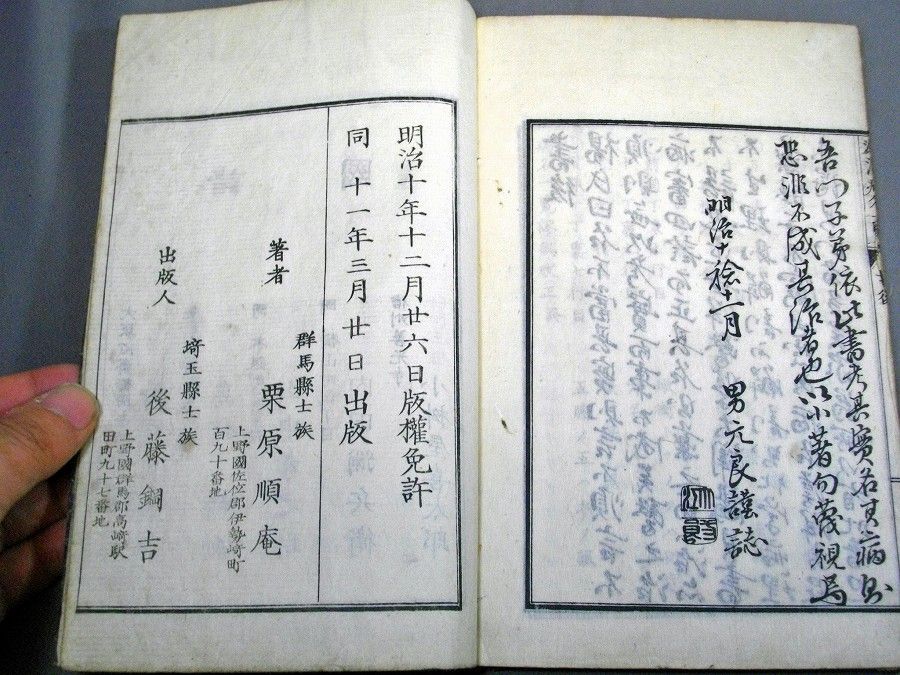 吾門子弟依此書考其實若其病則
恐非不成其治者也以小著勿蔑視焉
明治十稔十一月 男元良謹誌
明治十年十二月廿六日版權免許
同 十一年三月廿日出版
著者
群馬縣士族
栗原順庵
上野國佐位郡伊勢崎町
百九十番地
出版人
埼玉縣士族
後藤鋼吉
上野國群馬郡高崎驛
田町九十七番地